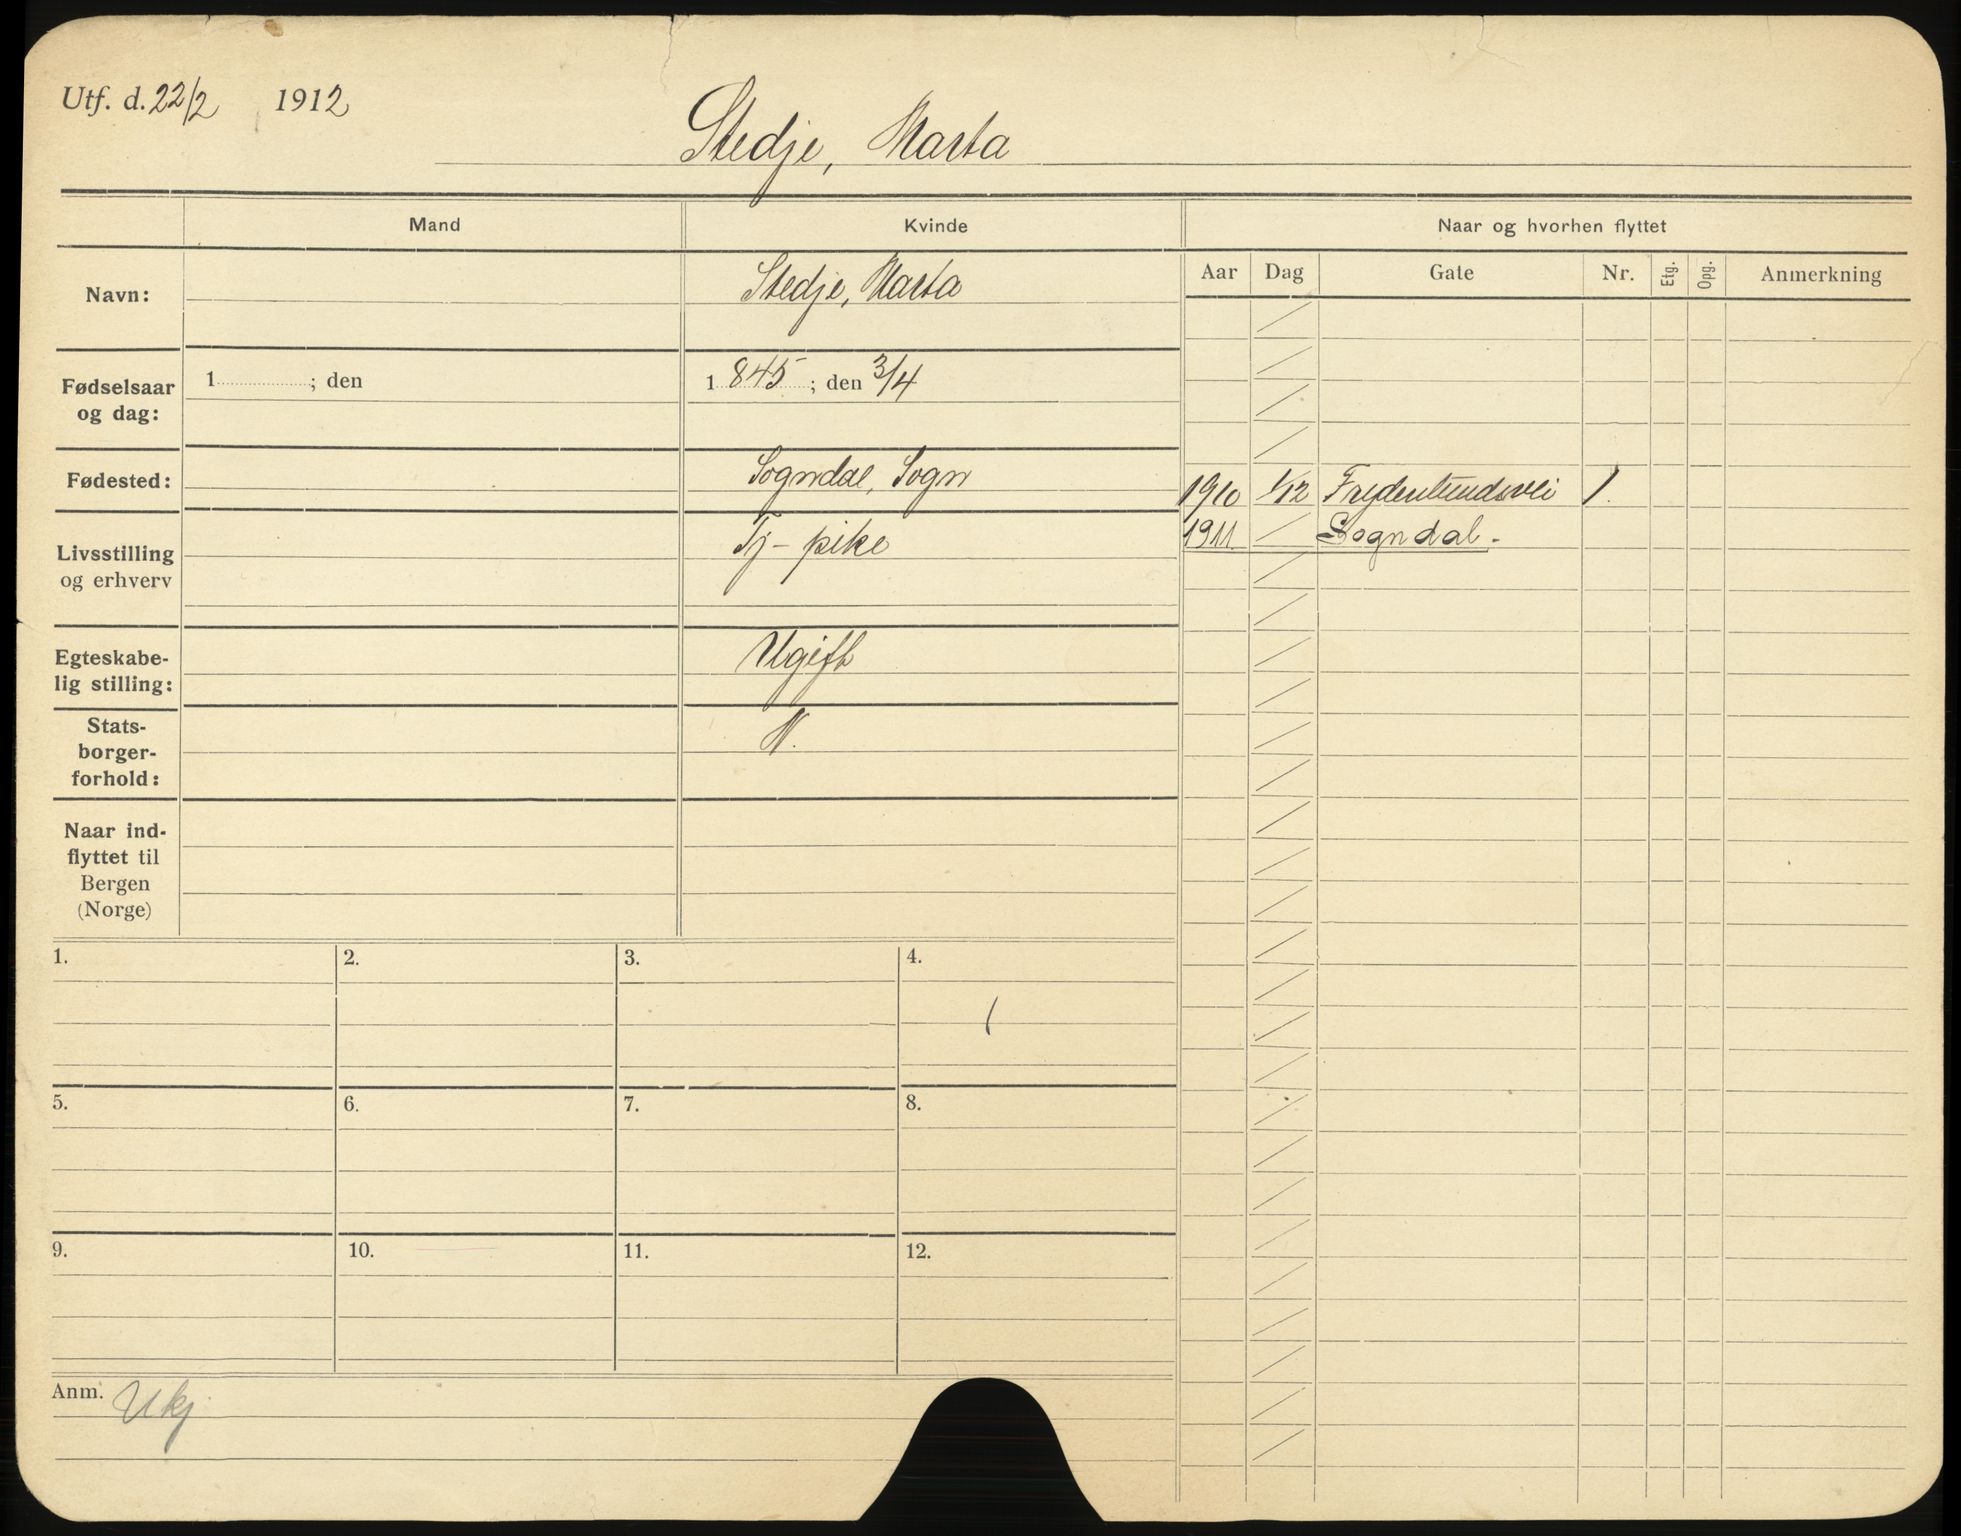 Utf. d. 22/2 1912
Stedje, Marta
Mand Kvinde Naar og hvorhen flyttet
Aar Dag Gate Nr. Etg. Opg. Anmerkning
Navn: Stedje, Marta
Fødselsaar og dag: 1 ; den 1845 ; den 3/4
Fødested: Sogndal, Sogn
1910 1/12 Frydenlundsvei 1.
Livsstilling og erhverv Tj-pike
1911 Sogndal.
Egteskabe-
lig stilling: Ugift
Stats-
borger-
forhold: N.
Naar ind-
flyttet til
Bergen
(Norge)
1. 2. 3. 4.
5. 6. 7. 8.
9. 10. 11. 12.
Anm. Ukj